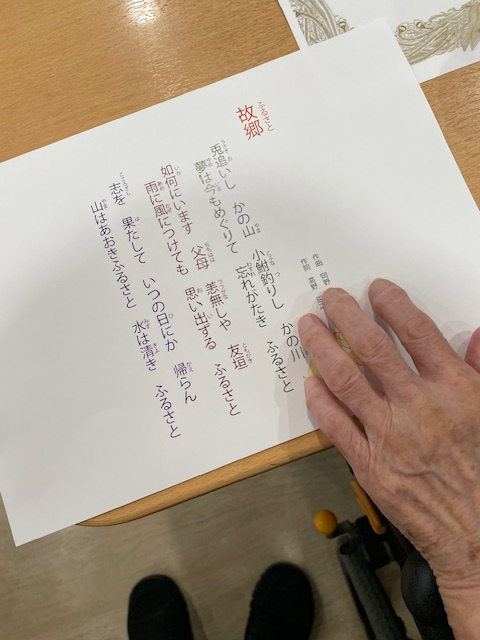 故郷
ふるさと
作曲 岡野
作詞 高野
兎追いし かの山 小鮒釣りし かの川
夢は今もめぐりて 忘れがたき ふるさと
如何にいます 父母 恙無しや 友垣
雨に風につけても 思い出ずる ふるさと
志を 果たして いつの日にか 帰らん
山はあおきふるさと 水は清き ふるさと